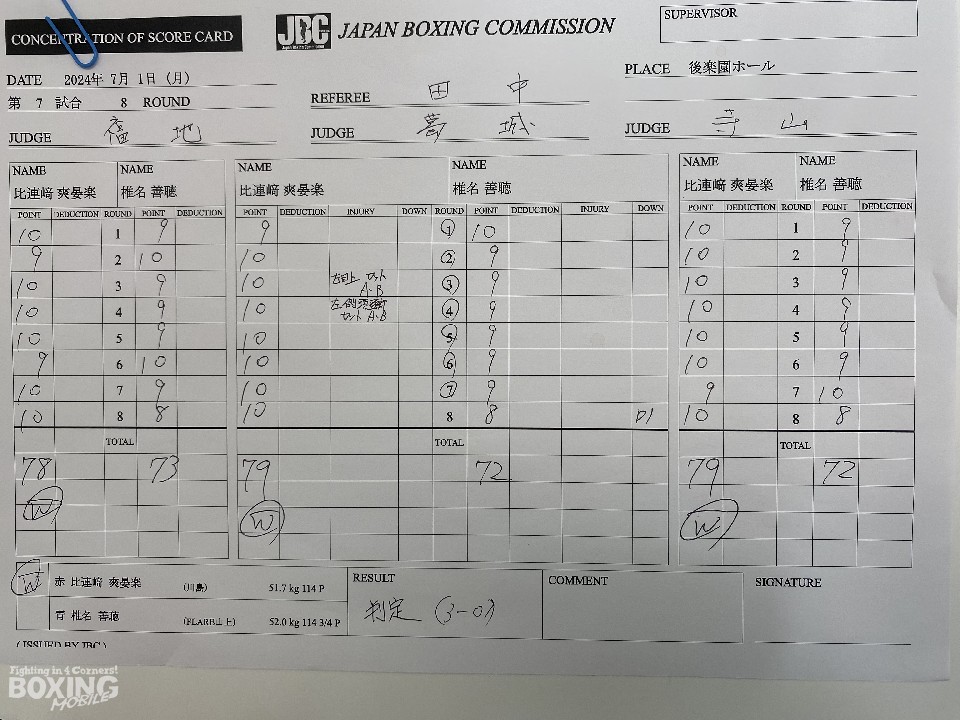 SUPERVISOR
CONCENTRATION OF SCORE CARD
JBC
Japan Boxing Commission
JAPAN BOXING COMMISSION
DATE 2024年 7月 1日 (月)
PLACE 後楽園ホール
第 7 試合 8 ROUND
REFEREE 田 中
JUDGE 地
JUDGE 葛 城
JUDGE 寺 山
NAME NAME NAME NAME NAME NAME
比連﨑 爽晏楽 椎名 善聴 比連﨑 爽晏楽 椎名 善聴 比連﨑 爽晏楽 椎名 善聴
POINT DEDUCTION ROUND POINT DEDUCTION POINT DEDUCTION INJURY DOWN ROUND POINT DEDUCTION INJURY DOWN POINT DEDUCTION ROUND POINT DEDUCTION
10 1 9 9 1 10 10 1 9
9 2 10 10 2 9 10 2 9
10 3 9 10 カット A・B 3 9 10 3 9
10 4 9 10 カット A・B 4 9 10 4 9
10 5 9 10 5 9 10 5 9
9 6 10 10 6 9 10 6 9
10 7 9 10 7 9 9 7 10
10 8 8 10 8 8 D1 10 8 8
TOTAL TOTAL TOTAL
78 73 79 72 79 72
W W W
W 赤 比連﨑 爽晏楽 (川島) 51.7 kg 114 P
青 椎名 善聴 (FLARE山上) 52.0 kg 114 3/4 P
RESULT
判定 (3-0)
COMMENT
SIGNATURE
(ISSUED BY JBC)
Fighting in 4 Corners!
BOXING
MOBILE